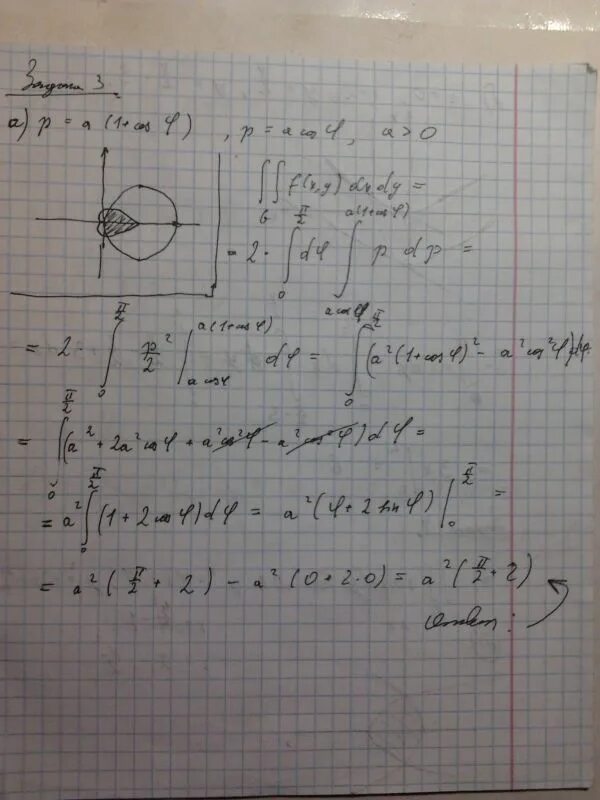 Задача 3
а) p = a (1+cos φ) , p = a cos φ, a > 0
∫∫ f(x,y) dx dy =
G
= 2 · ∫₀^{π/2} dφ ∫_{a cos φ}^{a(1+cos φ)} p dp =
= 2 · ∫₀^{π/2} p²/2 |_{a cos φ}^{a(1+cos φ)} dφ = ∫₀^{π/2} (a²(1+cos φ)² - a² cos² φ) dφ
= ∫₀^{π/2} (a² + 2a² cos φ + a² cos² φ - a² cos² φ) dφ =
= a² ∫₀^{π/2} (1 + 2 cos φ) dφ = a² (φ + 2 sin φ) |₀^{π/2} =
= a² (π/2 + 2) - a² (0 + 2·0) = a² (π/2 + 2)
Ответ: